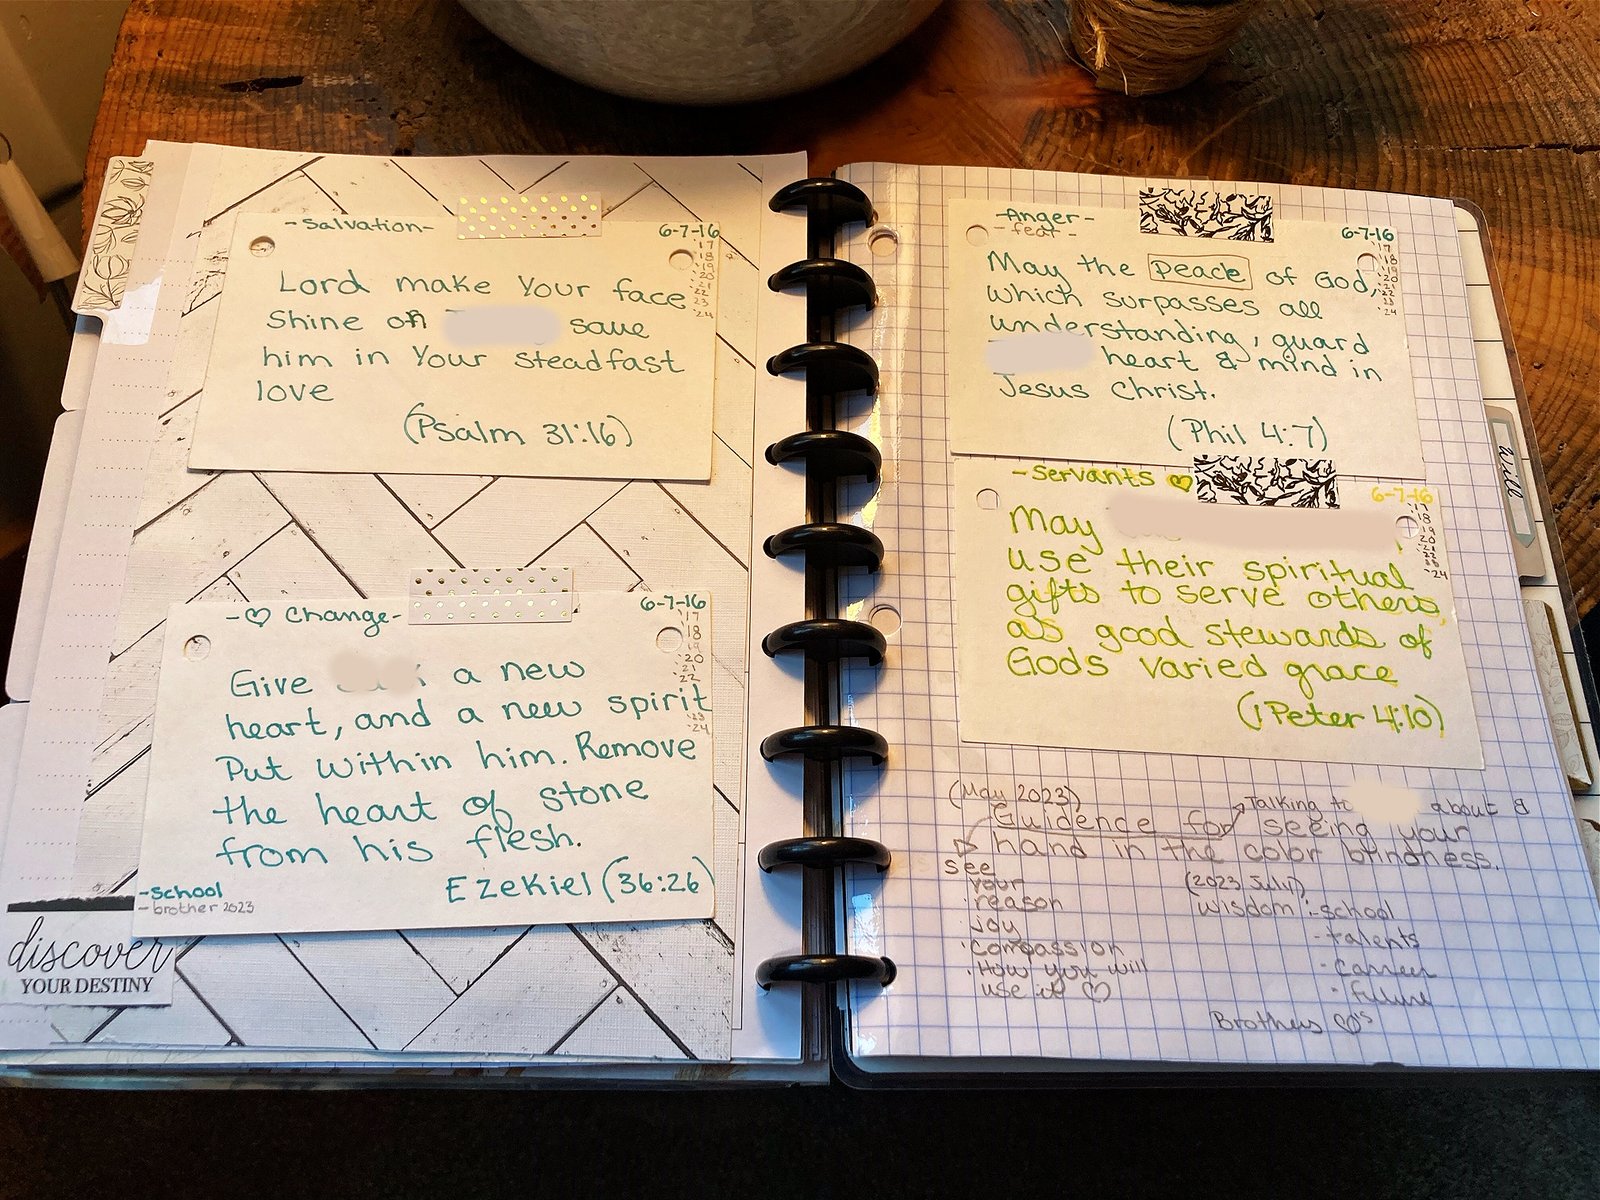 -Salvation-
6-7-16
'17
'18
'19
20
'21
22
23
'24
Lord make Your face
Shine on save
him in Your steadfast
love
(Psalm 31:16)
-♡ Change-
6-7-16
'17
'18
'19
'20
'21
'22
'23
'24
Give a new
heart, and a new spirit
Put within him. Remove
the heart of stone
from his flesh.
Ezekiel (36:26)
-School
-brother 2023
discover
YOUR DESTINY
-Anger-
-fear-
6-7-16
'17
'18
'19
20
'21
22
23
'24
May the peace of God,
which surpasses all
understanding, guard
heart & mind in
Jesus Christ.
(Phil 4:7)
-Servants ♡
6-7-16
'17
18
'24
May
use their spiritual
gifts to serve others,
as good stewards of
Gods varied grace
(1 Peter 4:10)
(May 2023)
Talking to about &
Guidence for seeing your
hand in the color blindness.
see
your
·reason
·joy
·compassion
·How you will
use it ♡
(2023 July)
Wisdom:-school
-talents
-career
-future
Brothers ♡'s
will